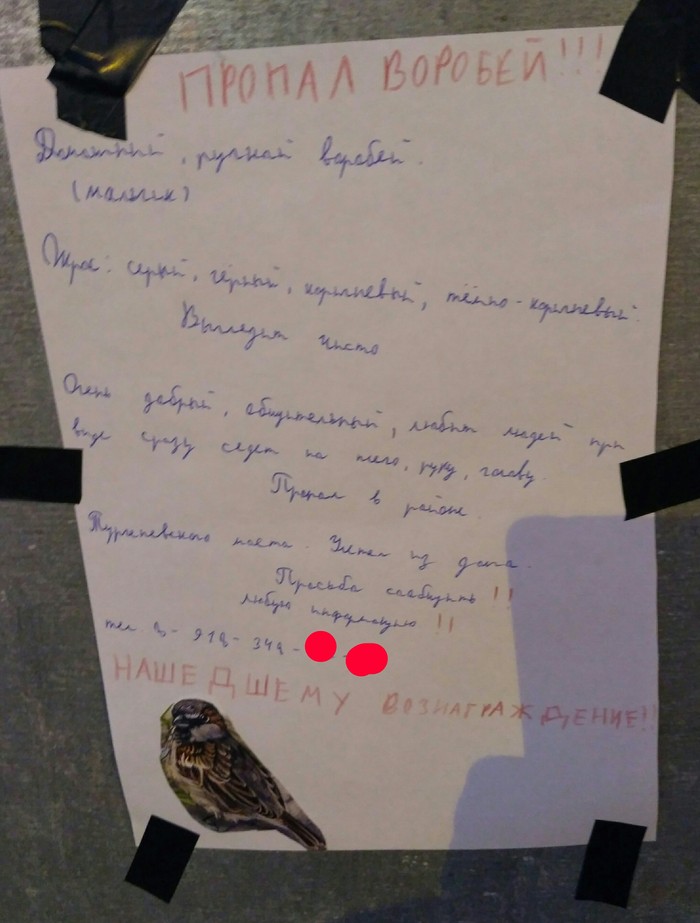 ПРОПАЛ ВОРОБЕЙ!!!
Домашний, ручной воробей.
(мальчик)
Окрас: серый, чёрный, коричневый, тёмно-коричневый.
Выглядит чисто
Очень добрый, общительный, любит людей при
виде сразу седет на плечо, руку, голову.
Пропал в районе
Тургеневского моста. Улетел из дома.
Просьба сообщить !!
любую информацию !!
тел 8-918-349-
НАШЕДШЕМУ ВОЗНАГРАЖДЕНИЕ!!